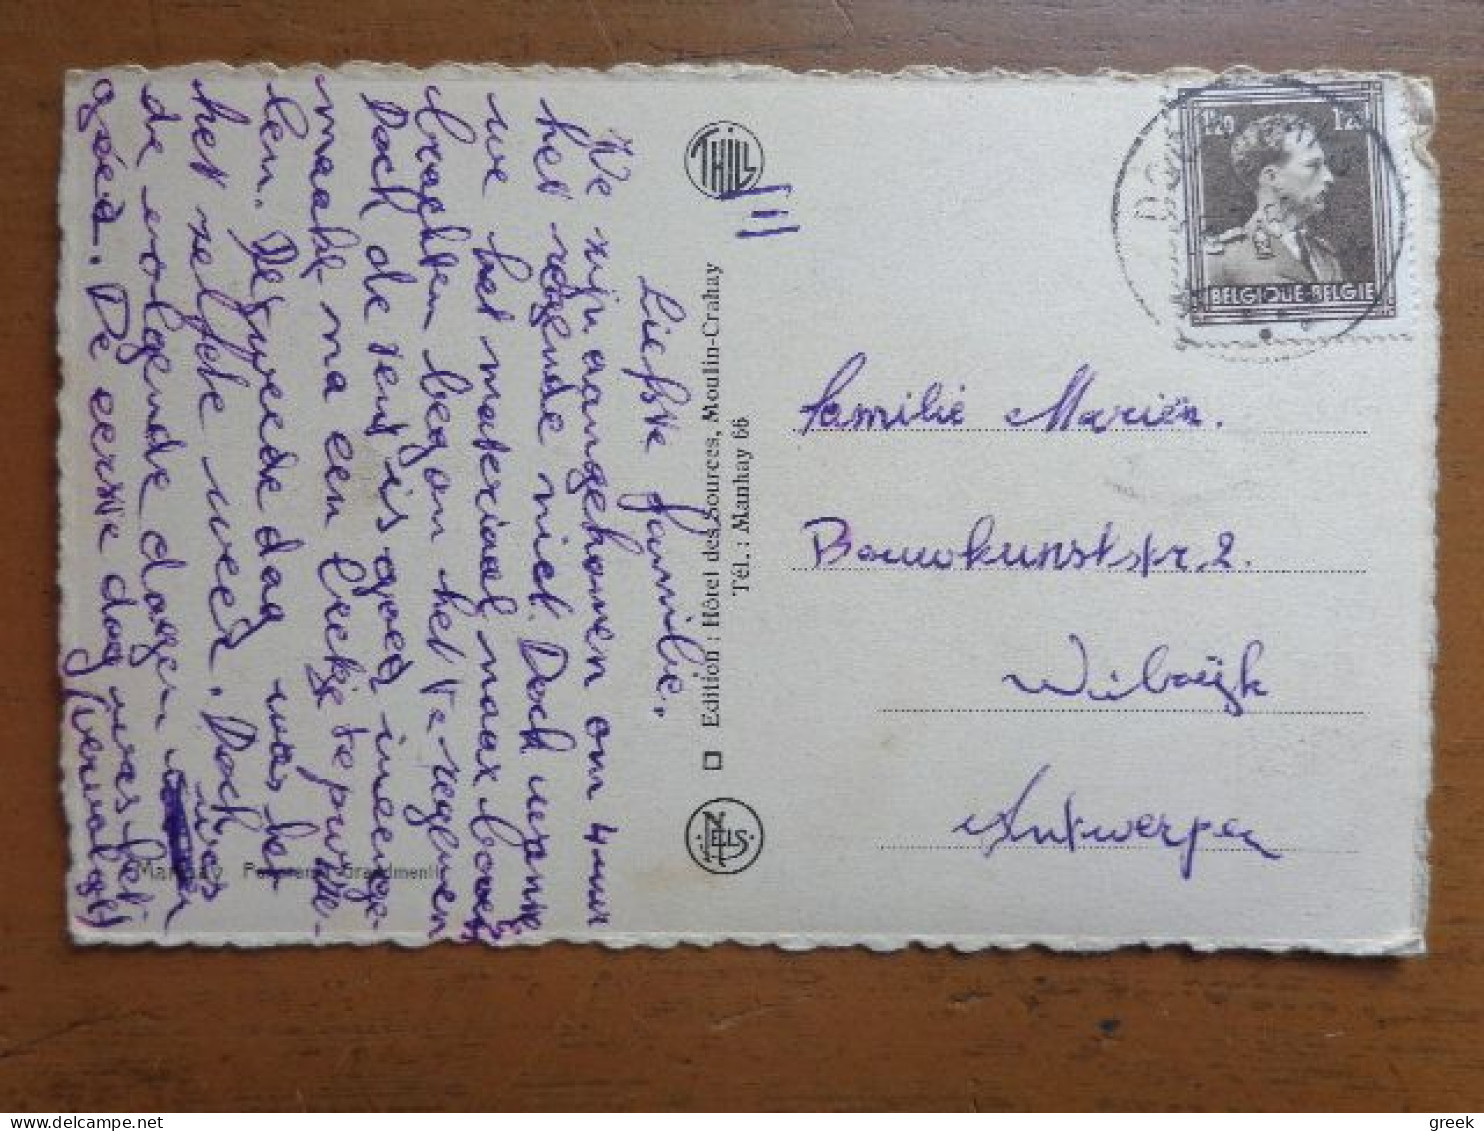 Liefste familie,
We zijn aangekomen om 4 uur
het regende niet. Doch wanneer
we het materiaal naar boven
brachten begon het te regenen
Doch de tent is goed ineenge-
maakt na een beetje te purste-
len. De tweede dag was het
het zelfde weer. Doch
de volgende dagen was
goed. De eerste dag was het
(vervolgt)
THILL
III
Edition : Hôtel des Sources, Moulin-Crahay
Tél. : Manhay 66
NELS
Manhay Panorama Grandmenil
1F20 1F20
BELGIQUE-BELGIE
Familie Mariën.
Bouwkunststr. 2.
Wilrijk
Antwerpen
greek